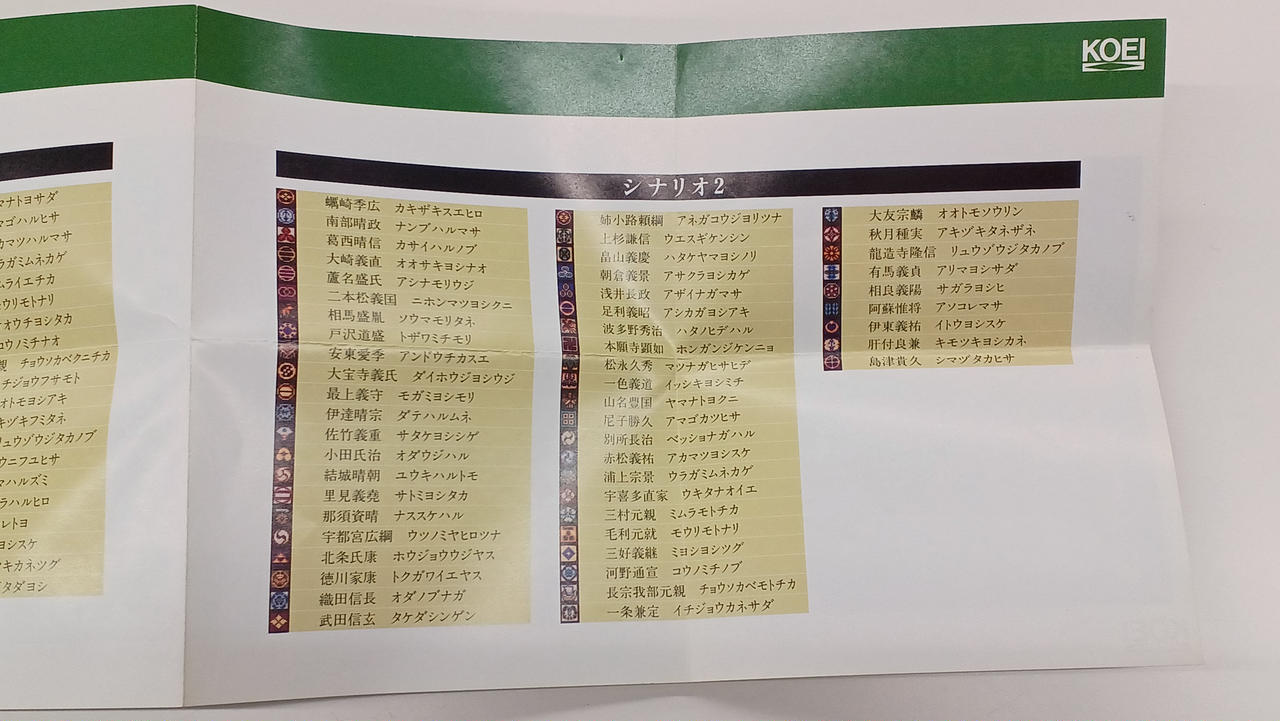 KOEI
マナトヨサダ
マゴハルヒサ
カマツハルマサ
ラガミムネカゲ
ムライエチカ
ウリモトナリ
オウチヨシタカ
コウノミチナオ
親 チョウソカベクニチカ
チジョウフサモト
オトモヨシアキ
キヅキフミタネ
リュウゾウジタカノブ
ウニフユヒサ
マハルズミ
ラハルヒロ
レトヨ
ヨシスケ
ツキカネツグ
ヅタダヨシ
シナリオ2
蠣崎季広 カキザキスエヒロ
南部晴政 ナンブハルマサ
葛西晴信 カサイハルノブ
大崎義直 オオサキヨシナオ
蘆名盛氏 アシナモリウジ
二本松義国 ニホンマツヨシクニ
相馬盛胤 ソウマモリタネ
戸沢道盛 トザワミチモリ
安東愛季 アンドウチカスエ
大宝寺義氏 ダイホウジヨシウジ
最上義守 モガミヨシモリ
伊達晴宗 ダテハルムネ
佐竹義重 サタケヨシシゲ
小田氏治 オダウジハル
結城晴朝 ユウキハルトモ
里見義堯 サトミヨシタカ
那須資晴 ナススケハル
宇都宮広綱 ウツノミヤヒロツナ
北条氏康 ホウジョウウジヤス
徳川家康 トクガワイエヤス
織田信長 オダノブナガ
武田信玄 タケダシンゲン
姉小路頼綱 アネガコウジヨリツナ
上杉謙信 ウエスギケンシン
畠山義慶 ハタケヤマヨシノリ
朝倉義景 アサクラヨシカゲ
浅井長政 アザイナガマサ
足利義昭 アシカガヨシアキ
波多野秀治 ハタノヒデハル
本願寺顕如 ホンガンジケンニョ
松永久秀 マツナガヒサヒデ
一色義道 イッシキヨシミチ
山名豊国 ヤマナトヨクニ
尼子勝久 アマゴカツヒサ
別所長治 ベッショナガハル
赤松義祐 アカマツヨシスケ
浦上宗景 ウラガミムネカゲ
宇喜多直家 ウキタナオイエ
三村元親 ミムラモトチカ
毛利元就 モウリモトナリ
三好義継 ミヨシヨシツグ
河野通宣 コウノミチノブ
長宗我部元親 チョウソカベモトチカ
一条兼定 イチジョウカネサダ
大友宗麟 オオトモソウリン
秋月種実 アキヅキタネザネ
龍造寺隆信 リュウゾウジタカノブ
有馬義貞 アリマヨシサダ
相良義陽 サガラヨシヒ
阿蘇惟将 アソコレマサ
伊東義祐 イトウヨシスケ
肝付良兼 キモツキヨシカネ
島津貴久 シマヅタカヒサ